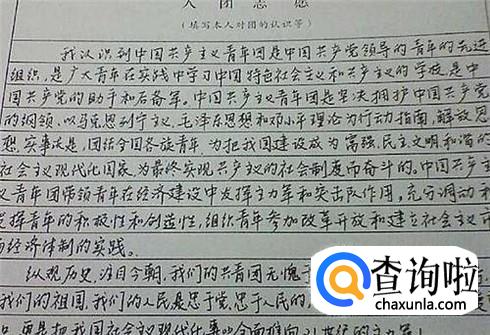 入团志愿
(填写本人对团的认识等)
我认识到中国共产主义青年团是中国共产党领导的青年的先进
组织,是广大青年在实践中学习中国特色社会主义和共产主义的学校,是中
国共产党的助手和后备军。中国共产主义青年团是坚决拥护中国共产党
的纲领,以马克思列宁主义、毛泽东思想和邓小平理论为行动指南,解放思
想,实事求是,团结全国各族青年,为把我国建设成为富强、民主、文明和谐的
社会主义现代化国家,为最终实现共产主义的社会制度而奋斗的。中国共产主
义青年团带领青年在经济建设中发挥主力军和突击队作用,充分调动和
发挥青年的积极性和创造性,组织青年参加改革开放和建立社会主义市
场经济体制的实践。
纵观历史,注目今朝,我们的共青团无愧于
我们的祖国,我们的人民是忠于党,忠于人民的,
更是把我国社会主义现代化事业全面推向
查询啦
chaxunla.com